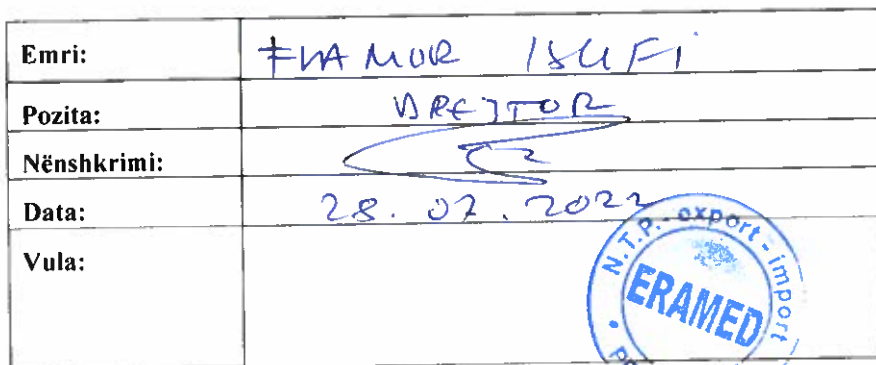 Emri: FLAMUR ISUFI
Pozita: DREJTOR
Nënshkrimi:
Data: 28.07.2022
Vula:
N.T.P. - export - import
ERAMED